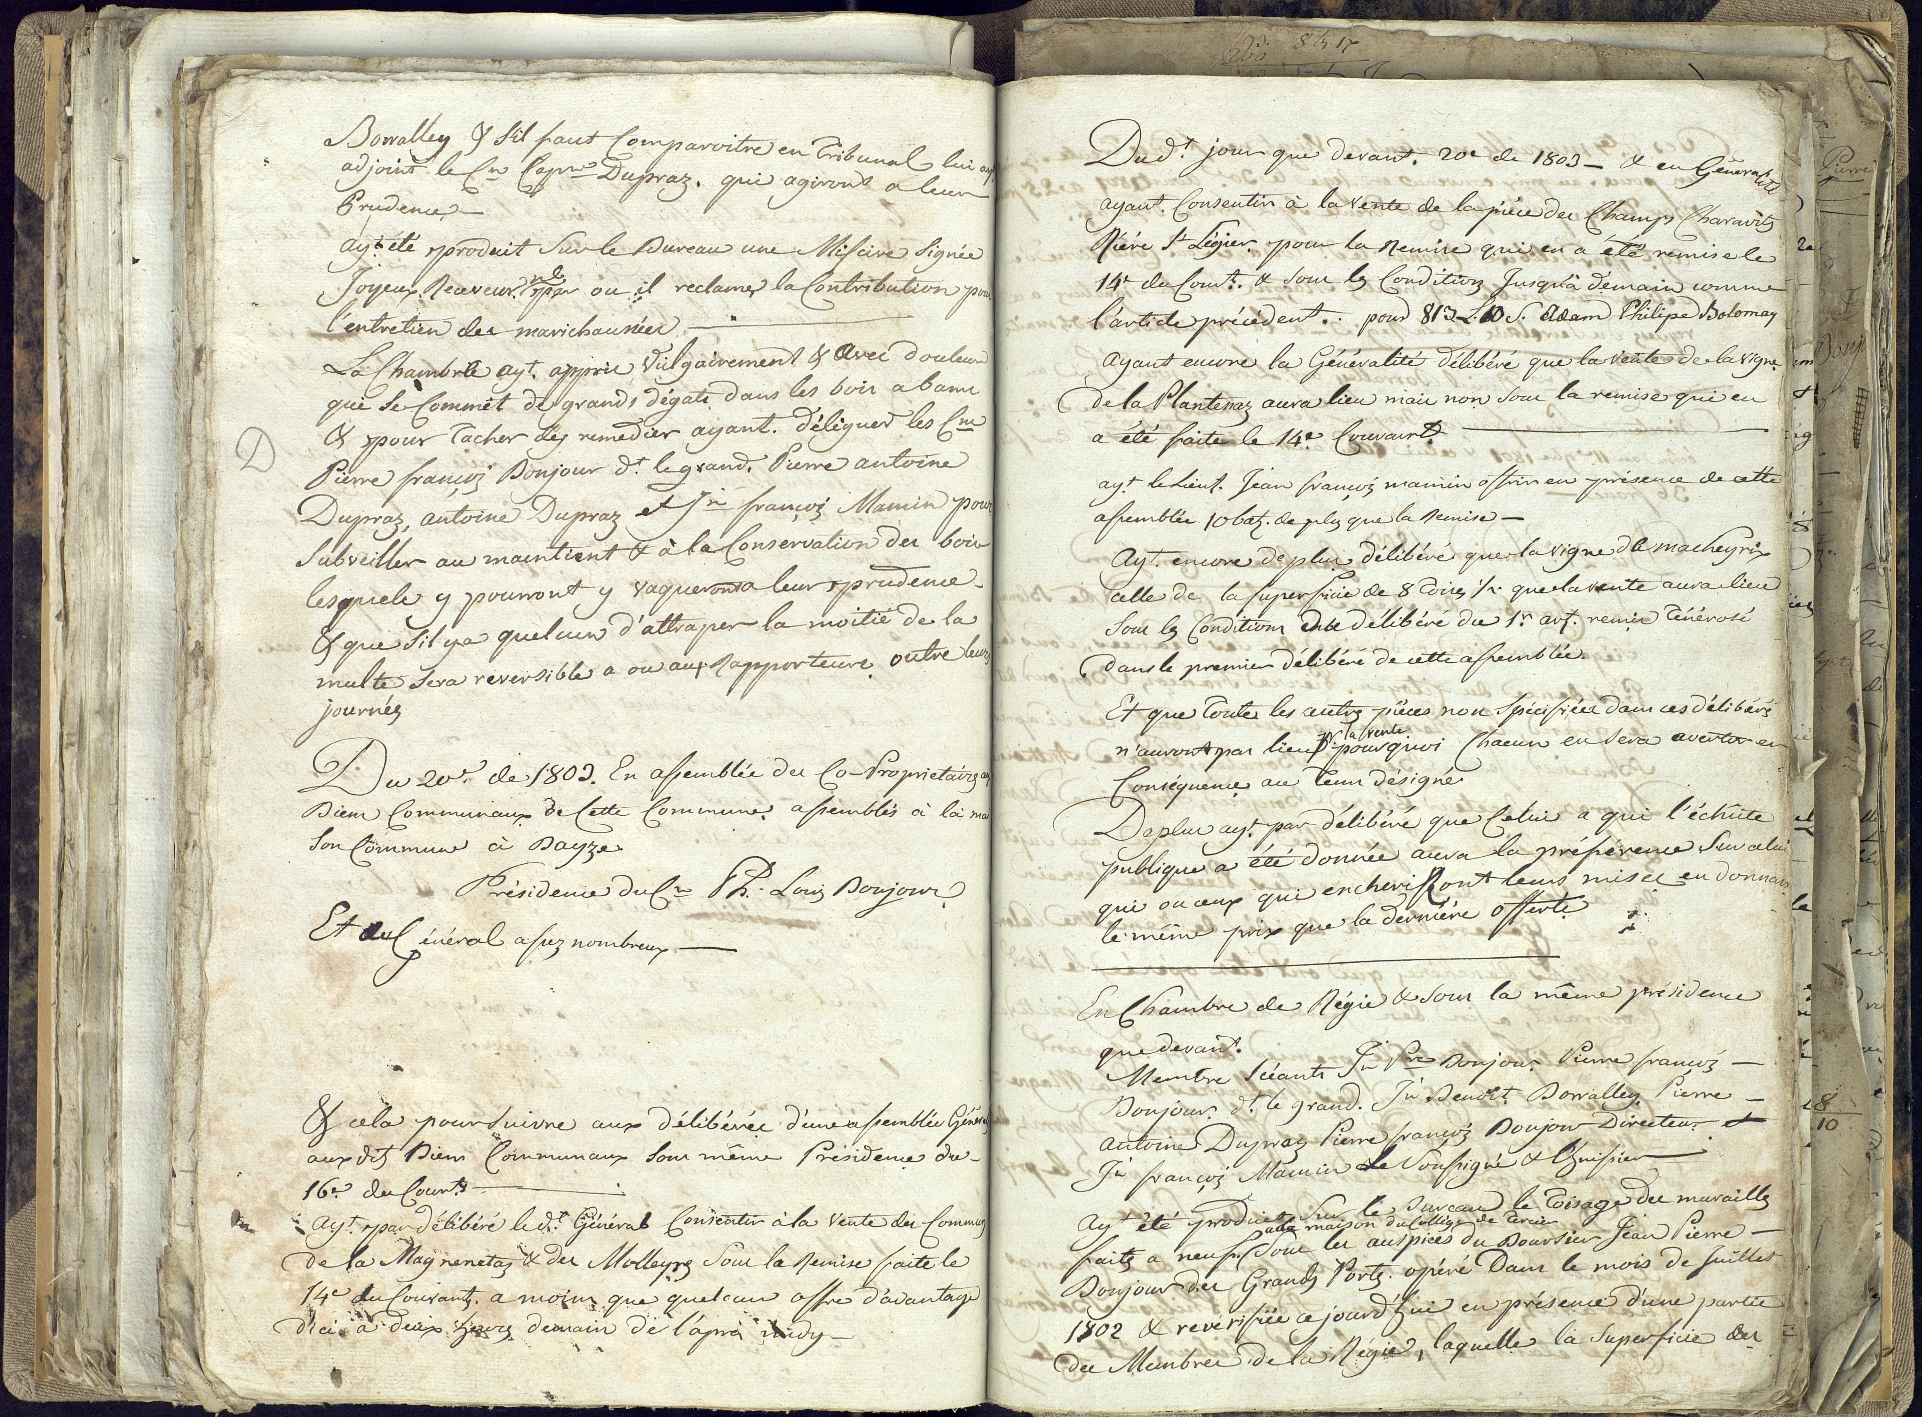 Borralley & s'il faut Comparoitre en Tribunal lui ay
adjoint le Cn Capne Dupraz. qui agiront a leur
Prudence —
ayt été produit Sur le Bureau une Missive Signée
Joyeux Receveur où il reclame la Contribution pour
l'entretien des marichaussées —
La Chambre ayt. appris Vulgairement & avec douleur
que se Commet de grands dégats dans les bois a banc
& pour tacher d'y remedier ayant. déléguer les Cns
D
Pierre françois Bonjour dt le grand. Pierre antoine
Dupraz, antoine Dupraz et Jn françois Mamin pour
Subveiller au maintient & à la Conservation des bois
lesquels y pourront y vaqueront a leur prudence —
& que s'il y a quelcun d'attraper la moitié de la
multe Sera reversible a ou aux Rapporteurs outre leurs
journées
Du 20e. de 1803. En assemblée des Co-Proprietaires aux
Biens Communaux de Cette Commune assemblés à la mai
Son Commune à Bayze
Présidence du Cn Ph. Louis Bonjour
Et du Général assez nombreux —
& cela pour Suivre aux délibérés d'une assemblée Général
aux dits Biens Communaux Sous même Présidence du —
16e du Court. —
Ayt. par délibéré le dt. Général Consentir à la Vente des Communs
de la Magnenetaz & des Molleyres Sous la Remise faite le
14e du Courant. a moins que quelcun offre d'avantage
d'ici à deux heures demain de l'après midy —
Dudt. jour que devant. 20e de 1803 — & en Généralité
ayant. Consentir à la Vente de la pièce des Champs Charavits
Rière St Légier pour la Remise qui en a été remise le
14e du Court. & Sous les Conditions Jusqu'à demain comme
l'article précédent. : pour 813 L. 10 S. Adam Philipe Bolomay
Ayant encore la Généralité délibéré que la vente de la vigne
de la Plantenaz aura lieu mais non Sous la remise qui en
a été faite le 14e Courant. —
ayt le Lieut. Jean françois mamin offrir en présence de cette
assemblée 10 batz. de plus que la Remise —
Ayt. encore de plus délibéré que la vigne de macheyrix
celle de la superficie de 8 Toises ½ que la vente aura lieu
Sous les Conditions du délibéré du 1r art. remis Ténérosé
dans le premier délibéré de cette assemblée.
Et que toutes les autres pièces non Spécifiées dans ces délibérés
la vente
n'auront pas lieu pourquoi Chacun en Sera avertir en
Conséquence au Tems désigné
De plus ayt. par délibéré que Celui a qui l'échûte
publique a été donnée aura la préférence Sur celui
qui ou ceux qui encheriront leurs mises en donnant
le même prix que la dernière offerte
En Chambre de Régie & Sous la même présidence
que devant.
Membre Séants Jn Pre Bonjour. Pierre françois —
Bonjour. dt le grand. Jn Benoit Borralley. Pierre —
antoine Dupraz Pierre françois Bonjour Directeur. et
Jn françois Mamin Le Soussigné & l'huissier —
Ayt été produit Sur le Bureau le Toisage des murailles
a la maison du Collége de Tercier
faits a neufs Sous les auspices du Boursier Jean Pierre —
Bonjour des Grands Ports. opéré Dans le mois de Juillet
1802 & reverifiée ce jourd'hui en présence d'une partie
des Membres de la Régie, laquelle la Superficie des